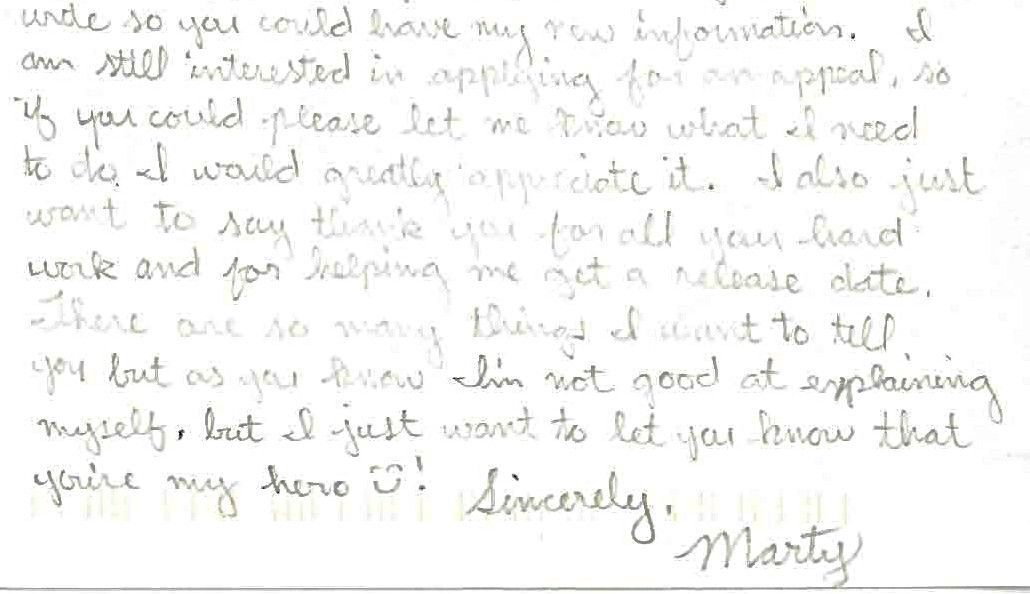 so you could have my new information. I
am still interested in applying for an appeal, so
if you could please let me know what I need
to do. I would greatly appreciate it. I also just
want to say thank you for all your hard
work and for helping me get a release date.
There are so many things I want to tell
you but as you know I'm not good at explaining
myself, but I just want to let you know that
you're my hero ☺! Sincerely,
Marty